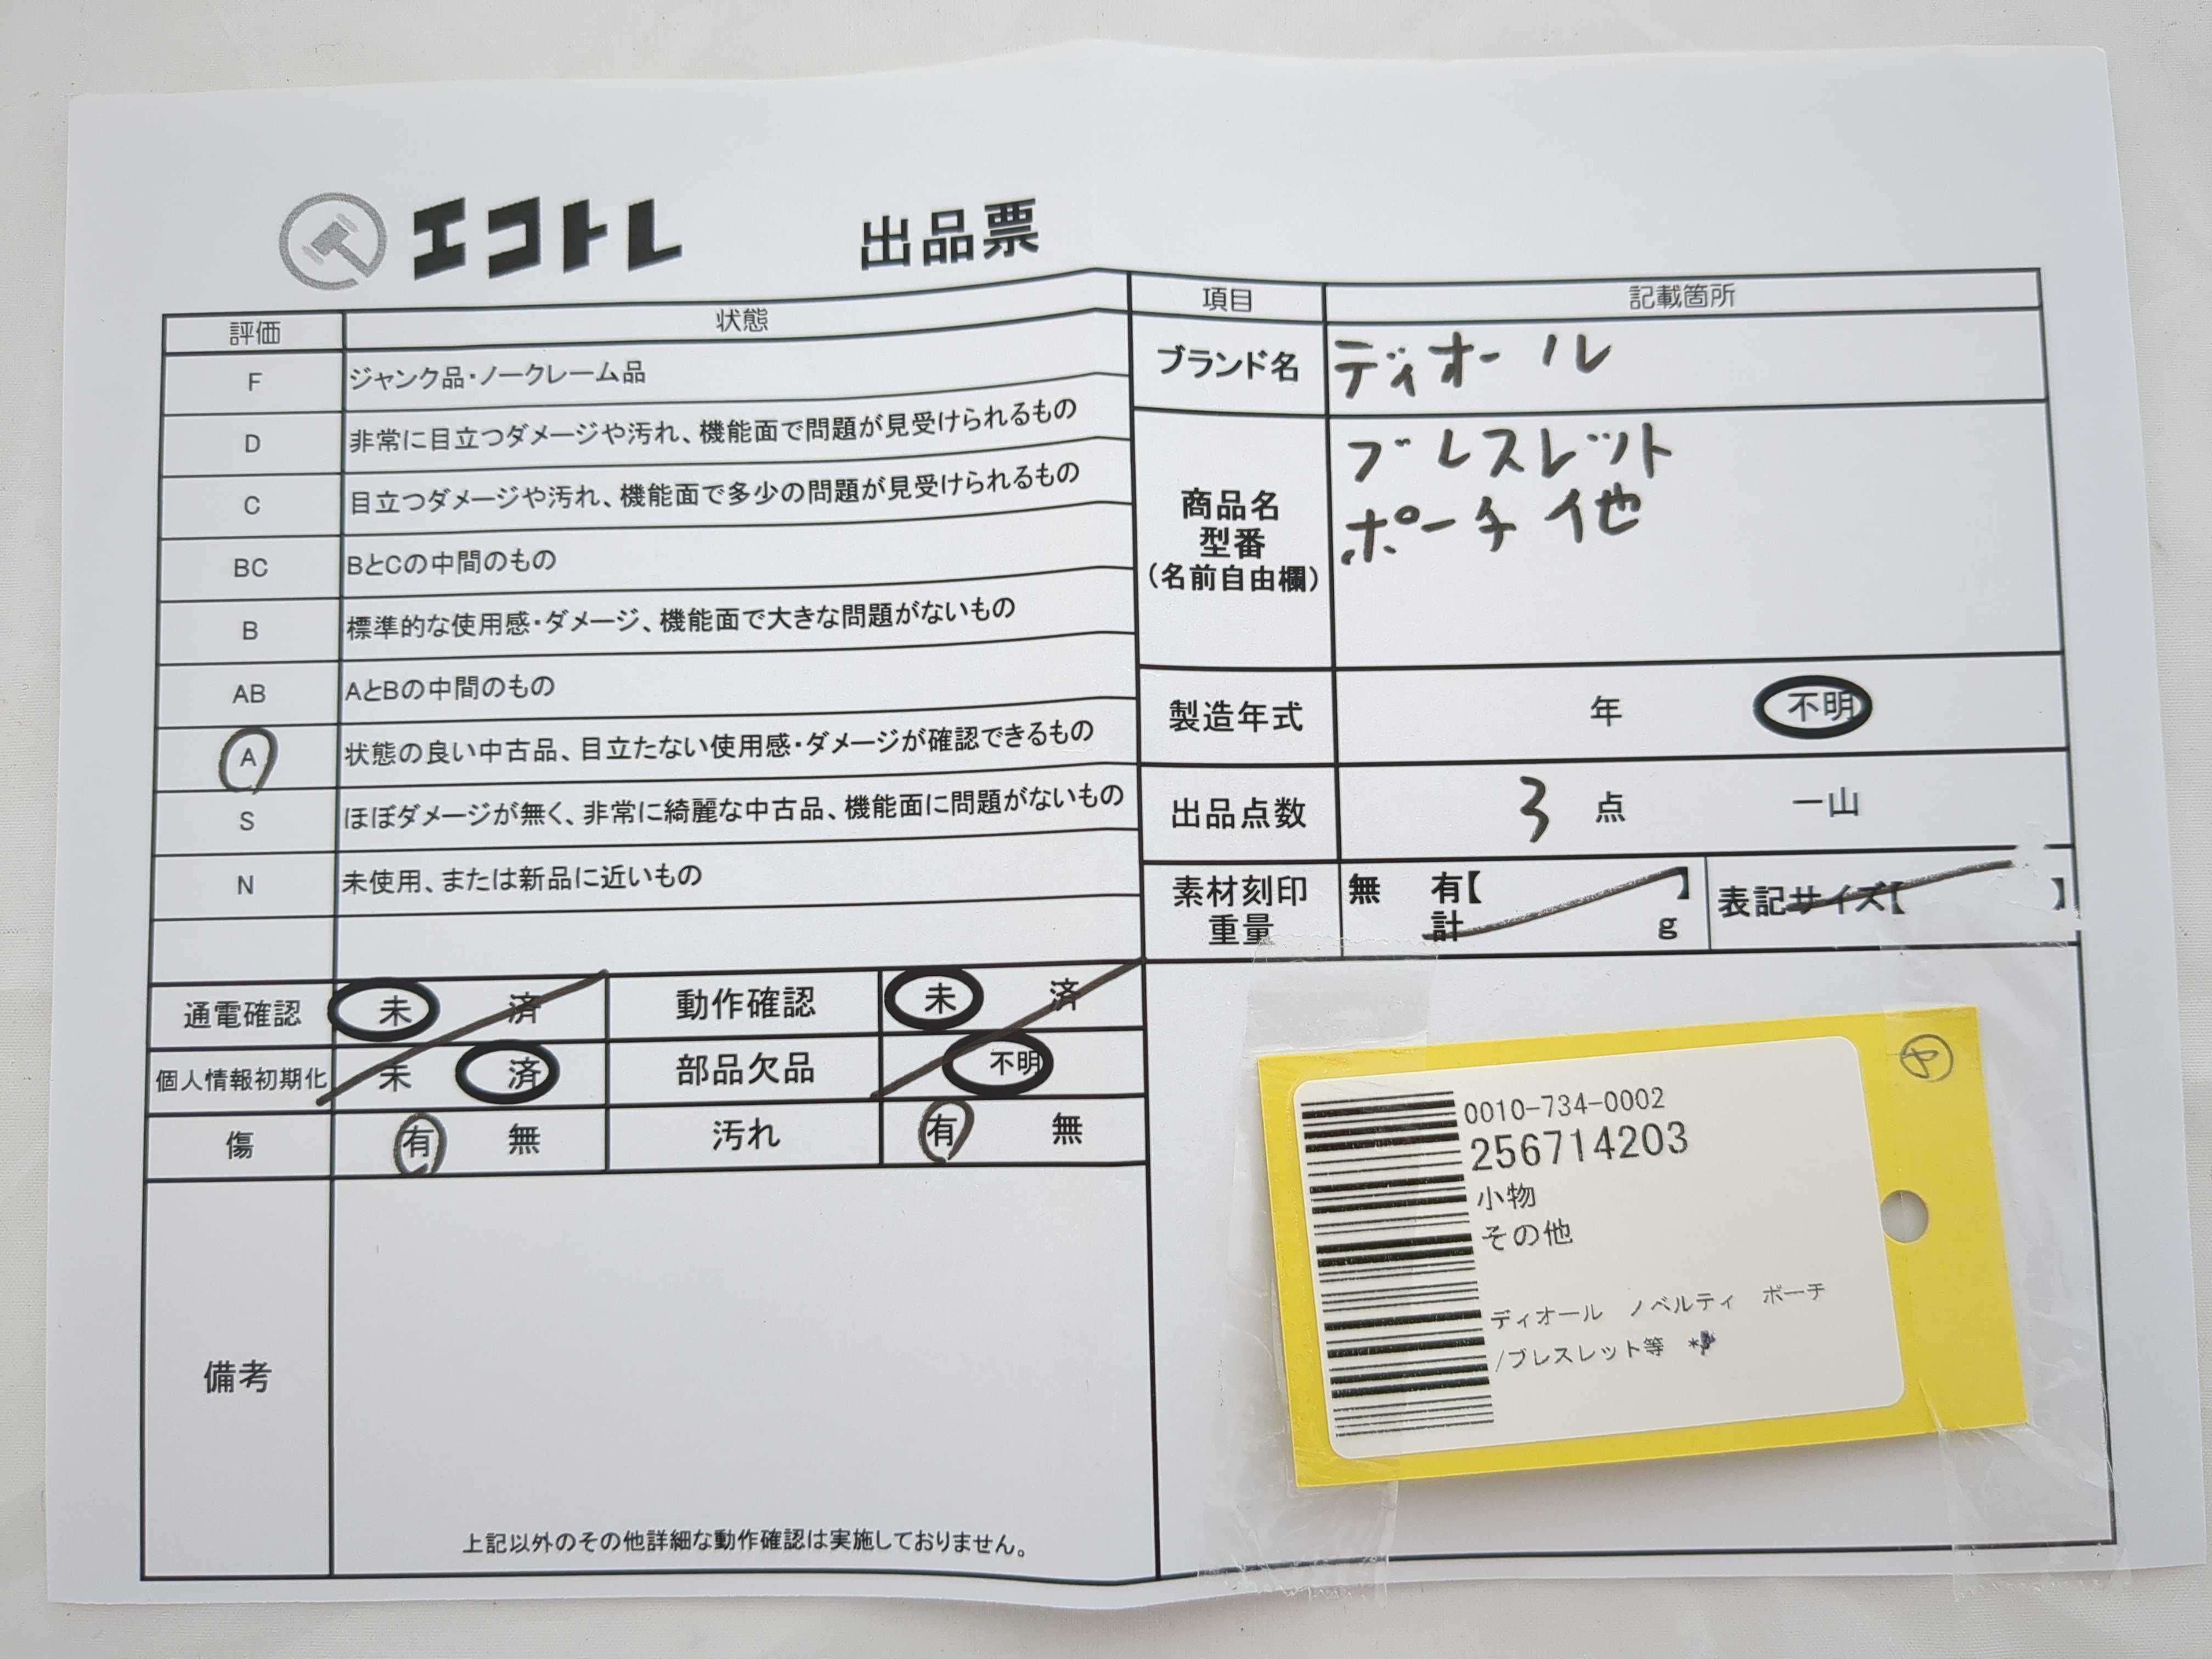 エコトレ 出品票
評価 状態
F ジャンク品・ノークレーム品
D 非常に目立つダメージや汚れ、機能面で問題が見受けられるもの
C 目立つダメージや汚れ、機能面で多少の問題が見受けられるもの
BC BとCの中間のもの
B 標準的な使用感・ダメージ、機能面で大きな問題がないもの
AB AとBの中間のもの
A 状態の良い中古品、目立たない使用感・ダメージが確認できるもの
S ほぼダメージが無く、非常に綺麗な中古品、機能面に問題がないもの
N 未使用、または新品に近いもの
通電確認 未 済 動作確認 未 済
個人情報初期化 未 済 部品欠品 不明
傷 有 無 汚れ 有 無
備考
上記以外のその他詳細な動作確認は実施しておりません。
項目 記載箇所
ブランド名 ディオール
商品名
型番
(名前自由欄)
ブレスレット
ポーチ他
製造年式 年 不明
出品点数 3 点 一山
素材刻印 無 有【 】 表記サイズ【 】
重量 計 g
ヤ
0010-734-0002
256714203
小物
その他
ディオール ノベルティ ポーチ
/ブレスレット等 *